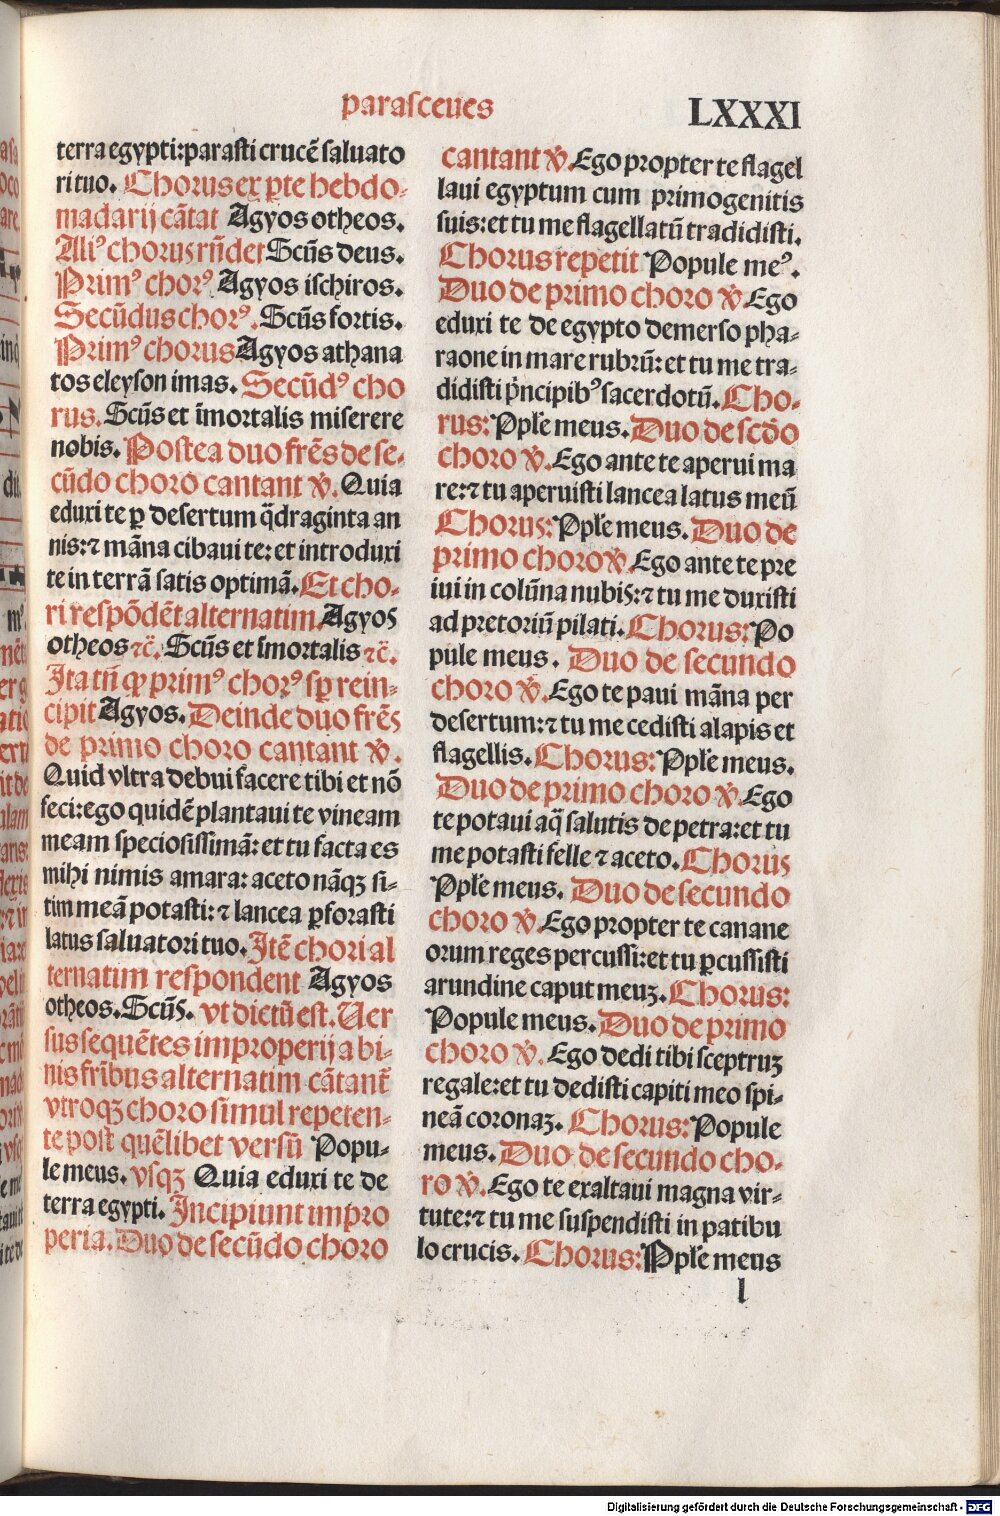 parasceues
LXXXI
terra egypti: parasti crucē saluato
ri tuo. Chorus ex ꝑte hebdo-
madarij cātat Agyos otheos.
Aliꝰ chorus rn̄det Scūs deus.
Primꝰ chorꝰ Agyos ischiros.
Secūdus chorꝰ. Scūs fortis.
Primꝰ chorus Agyos athana
tos eleyson imas. Secūdꝰ cho
rus. Scūs et īmortalis miserere
nobis. Postea duo frēs de se-
cūdo choro cantant ℣. Quia
eduxi te ꝑ desertum q̄draginta an
nis: ⁊ māna cibaui te: et introduxi
te in terrā satis optimā. Et cho-
ri respōdēt alternatim Agyos
otheos ⁊c̄. Scūs et īmortalis ⁊c̄.
Ita tn̄ ꝙ primꝰ chorꝰ sꝑ rein-
cipit Agyos. Deinde duo frēs
de primo choro cantant ℣.
Quid vltra debui facere tibi et nō
feci: ego quidē plantaui te vineam
meam speciosissimā: et tu facta es
mihi nimis amara: aceto nāqꝫ si-
tim meā potasti: ⁊ lancea ꝑforasti
latus saluatori tuo. Itē chori al
ternatim respondent Agyos
otheos. Scūs. vt dictū est. Uer
sus sequētes improperij a bi-
nis fr̄ibus alternatim cātant̄
vtroqꝫ choro simul repeten-
te post quēlibet versū Popu-
le meus. vsqꝫ Quia eduxi te de
terra egypti. Incipiunt impro
peria. Duo de secūdo choro
cantant ℣. Ego propter te flagel
laui egyptum cum primogenitis
suis: et tu me flagellatū tradidisti.
Chorus repetit Popule meꝰ.
Duo de primo choro ℣ Ego
eduxi te de egypto demerso pha-
raone in mare rubrū: et tu me tra-
didisti p̄ncipibꝰ sacerdotū. Cho-
rus: Pplē meus. Duo de scdo
choro ℣. Ego ante te aperui ma
re: ⁊ tu aperuisti lancea latus meū
Chorus: Pplē meus. Duo de
primo choro ℣. Ego ante te pre
iui in colūna nubis: ⁊ tu me duxisti
ad pretoriū pilati. Chorus: Po
pule meus. Duo de secundo
choro ℣. Ego te paui māna per
desertum: ⁊ tu me cedisti alapis et
flagellis. Chorus: Pplē meus.
Duo de primo choro ℣. Ego
te potaui aq̄ salutis de petra: et tu
me potasti felle ⁊ aceto. Chorus
Pplē meus. Duo de secundo
choro ℣. Ego propter te canane
orum reges percussi: et tu ꝑcussisti
arundine caput meuꝫ. Chorus:
Popule meus. Duo de primo
choro ℣. Ego dedi tibi sceptruꝫ
regale: et tu dedisti capiti meo spi-
neā coronaꝫ. Chorus: Popule
meus. Duo de secundo cho-
ro ℣. Ego te exaltaui magna vir-
tute: ⁊ tu me suspendisti in patibu
lo crucis. Chorus: Pplē meus
l
Digitalisierung gefördert durch die Deutsche Forschungsgemeinschaft - DFG